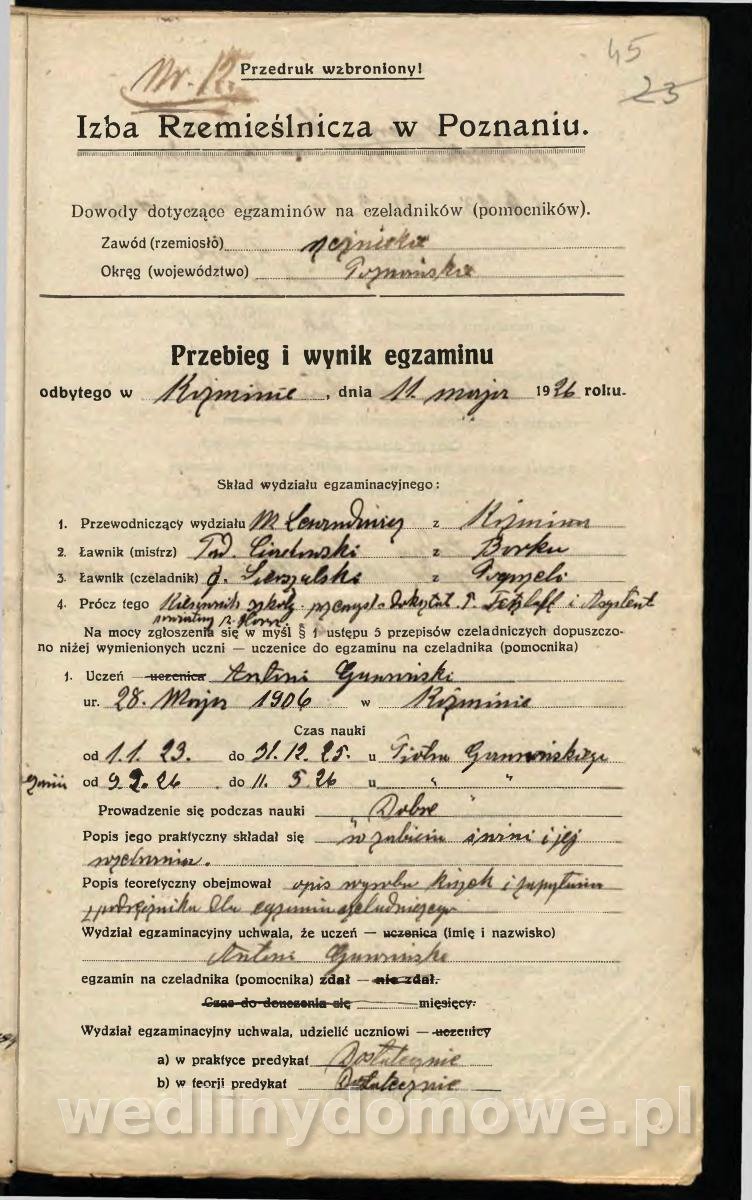 Nr. 12.
45
23
Przedruk wzbroniony!
Izba Rzemieślnicza w Poznaniu.
Dowody dotyczące egzaminów na czeladników (pomocników).
Zawód (rzemiosło)
Okręg (województwo) Poznańskie
Przebieg i wynik egzaminu
odbytego w Koźminie, dnia 11. maja 1926 roku.
Skład wydziału egzaminacyjnego:
1. Przewodniczący wydziału z Koźmina
2. Ławnik (mistrz) z Borku
3. Ławnik (czeladnik) z Pogorzeli
4. Prócz tego Kierownik szkoły przemysł. dokształ. i Asystent
Na mocy zgłoszenia się w myśl § 1 ustępu 5 przepisów czeladniczych dopuszczo-
no niżej wymienionych uczni — uczenice do egzaminu na czeladnika (pomocnika)
1. Uczeń — uczenica Antoni
ur. 28. Maja 1906 w Koźminie
Czas nauki
od 1.1. 23. do 31.12. 25. u Piotra
od 9.2. 26 do 11. 5 26 u " "
Prowadzenie się podczas nauki „Dobre"
Popis jego praktyczny składał się w zabiciu świni i jej
Popis teoretyczny obejmował opis wyrobu kiszek i zapytania
z podręcznika dla egzaminu czeladniczego
Wydział egzaminacyjny uchwala, że uczeń — uczenica (imię i nazwisko)
Antoni
egzamin na czeladnika (pomocnika) zdał — nie zdał.
Czas do douczenia się miesięcy.
Wydział egzaminacyjny uchwala, udzielić uczniowi — uczenicy
a) w praktyce predykat Dostatecznie
b) w teorji predykat Dostatecznie
wedlinydomowe.pl